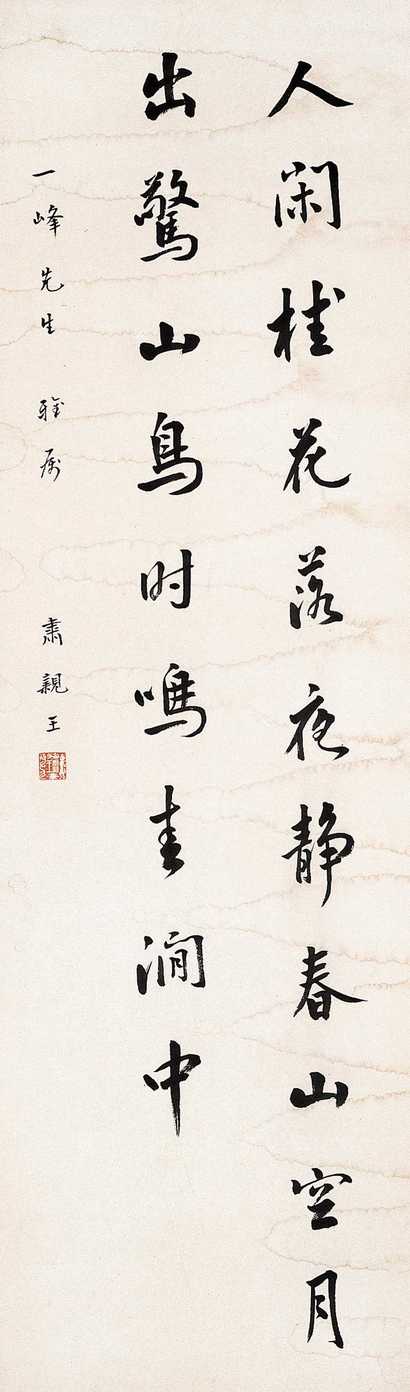 人閑桂花落夜静春山空月
出驚山鳥时鳴春澗中
一峰先生 雅属 肅親王